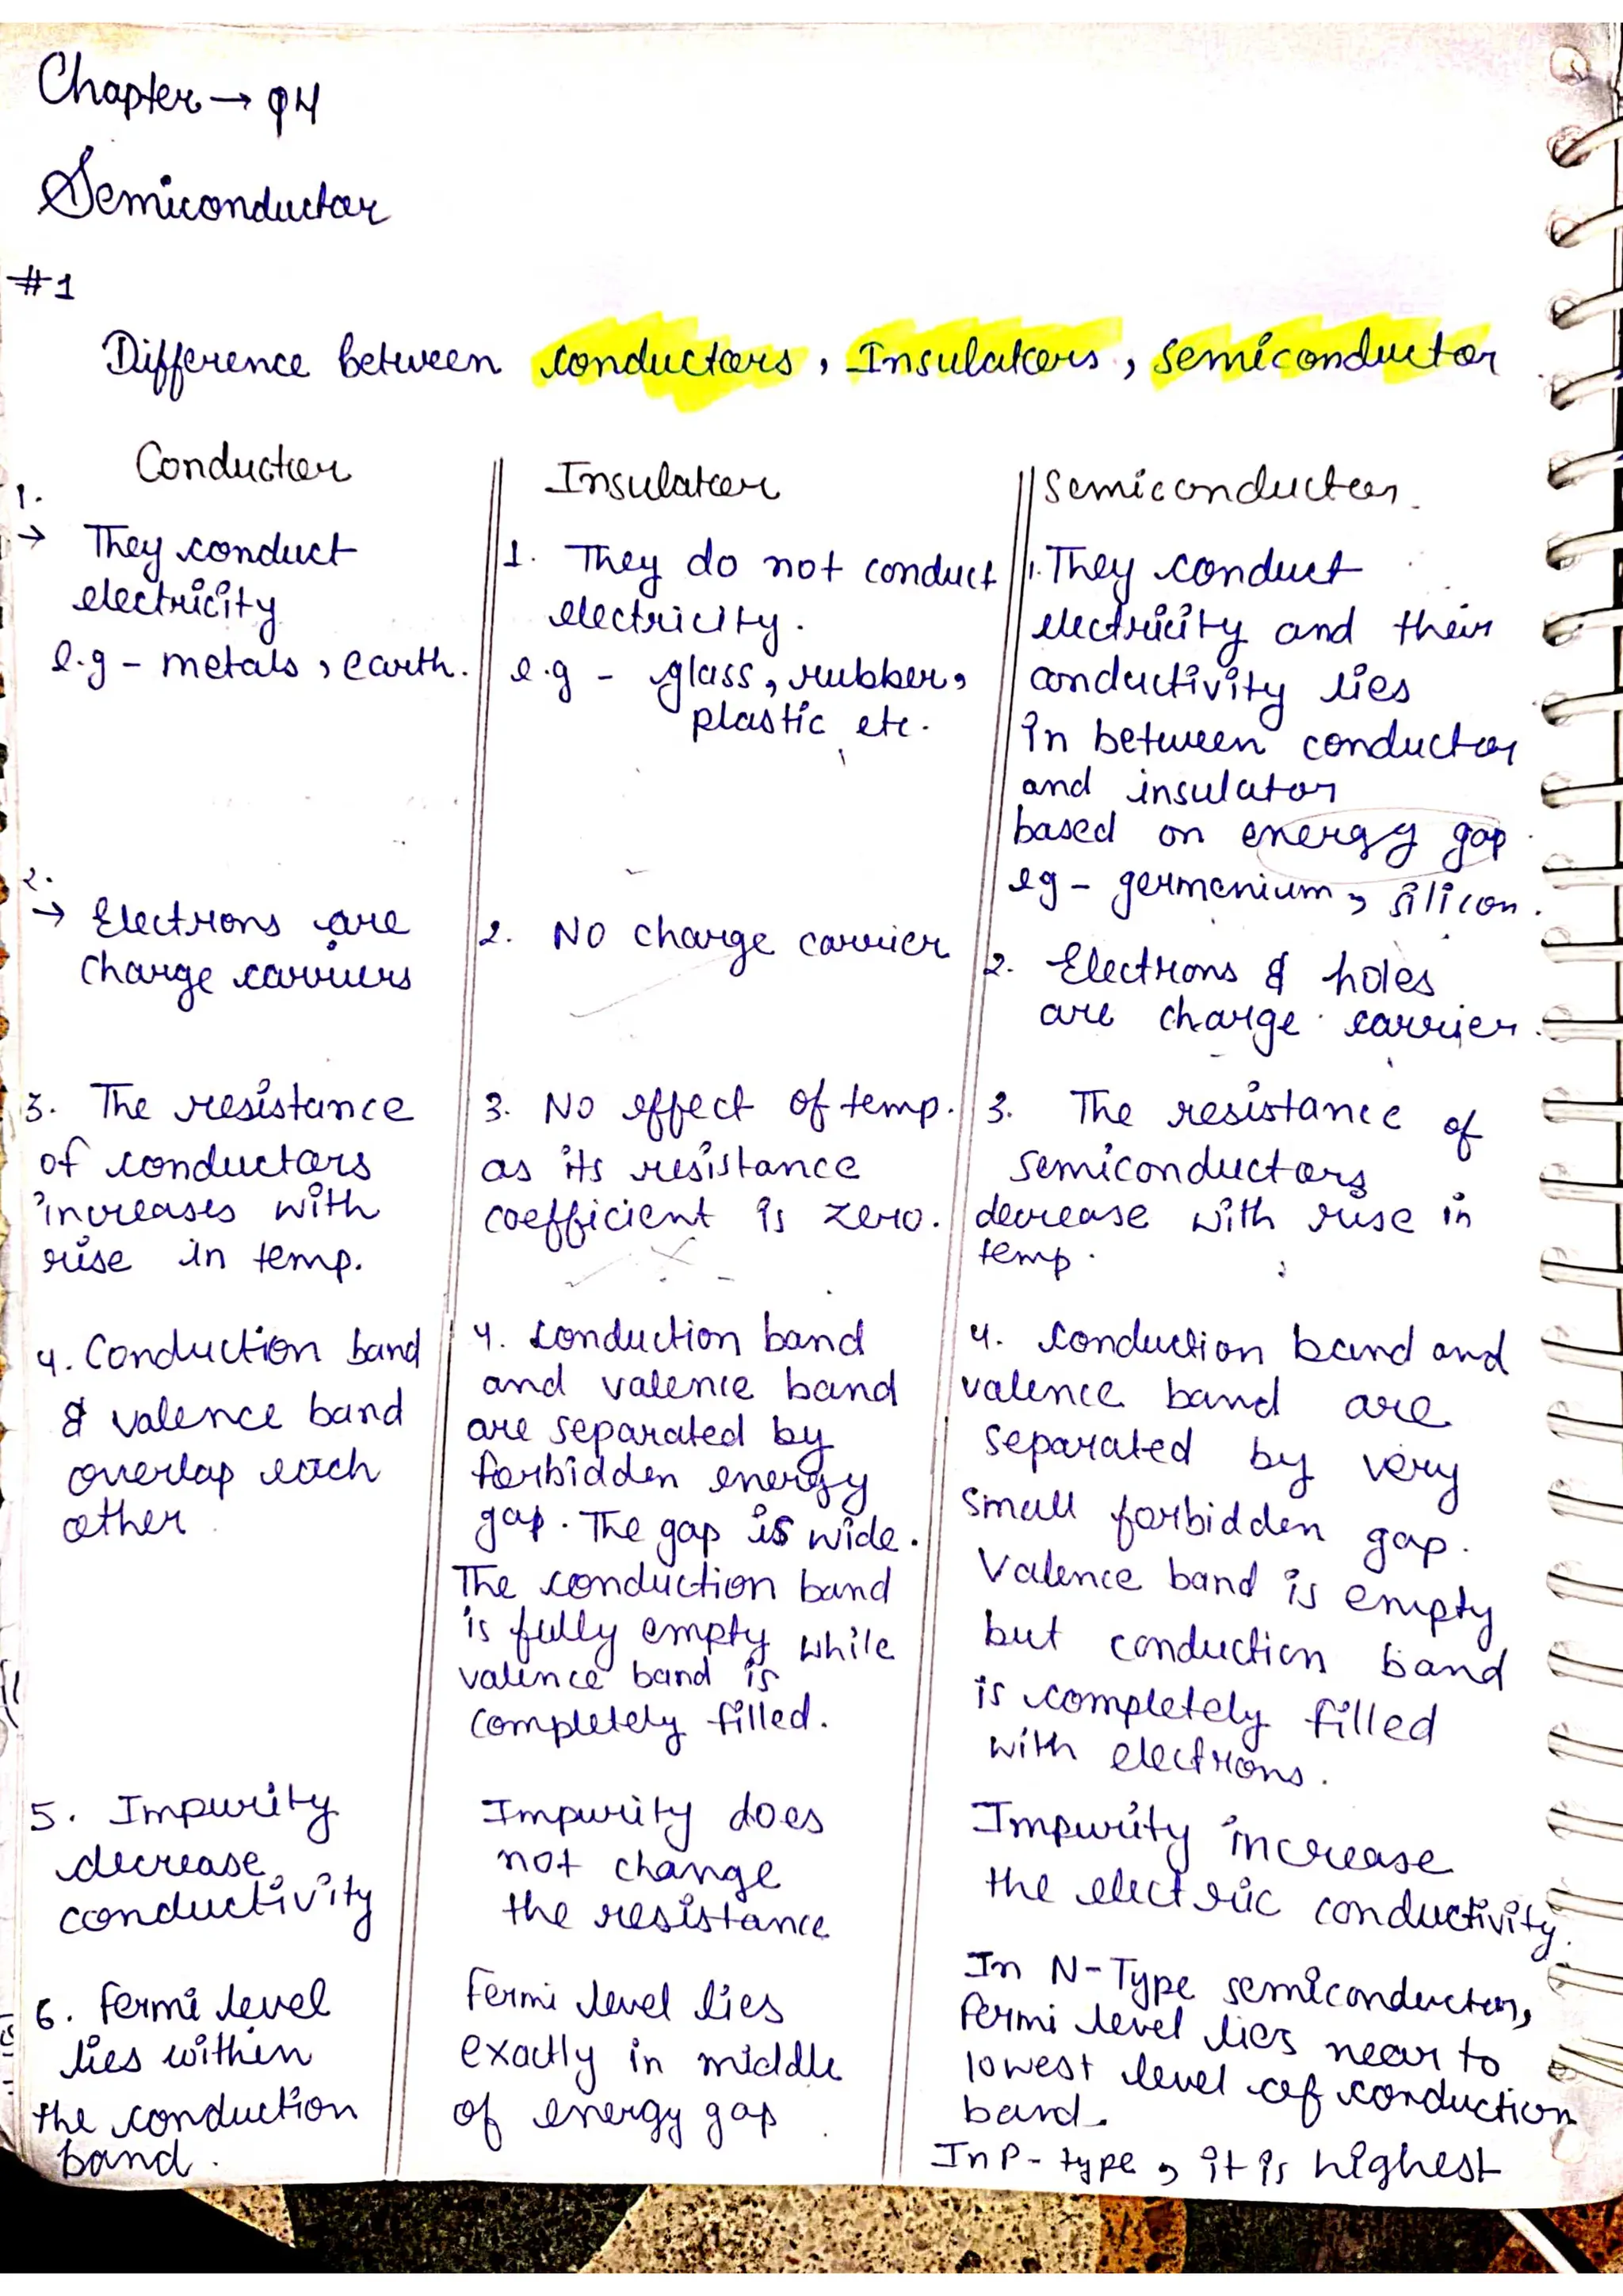 Chapter → 14
Semiconductor
#1
Difference between conductors, Insulators, semiconductor
Conductor
1.
→ They conduct
electricity
e.g - metals, earth.
2.
→ Electrons are
charge carriers
3. The resistance
of conductors
increases with
rise in temp.
4. Conduction band
& valence band
overlap each
other
5. Impurity
decrease
conductivity
6. Fermi level
lies within
the conduction
band.
Insulator
1. They do not conduct
electricity.
e.g - glass, rubber,
plastic etc.
2. No charge carrier
3. No effect of temp.
as its resistance
coefficient is zero.
4. Conduction band
and valence band
are separated by
forbidden energy
gap. The gap is wide.
The conduction band
is fully empty while
valence band is
completely filled.
Impurity does
not change
the resistance
Fermi level lies
exactly in middle
of energy gap
Semiconductor.
1. They conduct
electricity and their
conductivity lies
in between conductor
and insulator
based on energy gap
eg - germenium, silicon.
2. Electrons & holes
are charge carrier.
3. The resistance of
semiconductors
decrease with rise in
temp.
4. Conduction band and
valence band are
separated by very
small forbidden gap.
Valence band is empty
but conduction band
is completely filled
with electrons.
Impurity increase
the electric conductivity.
In N-Type semiconductor,
Fermi level lies near to
lowest level of conduction
band.
In P-type, it is highest